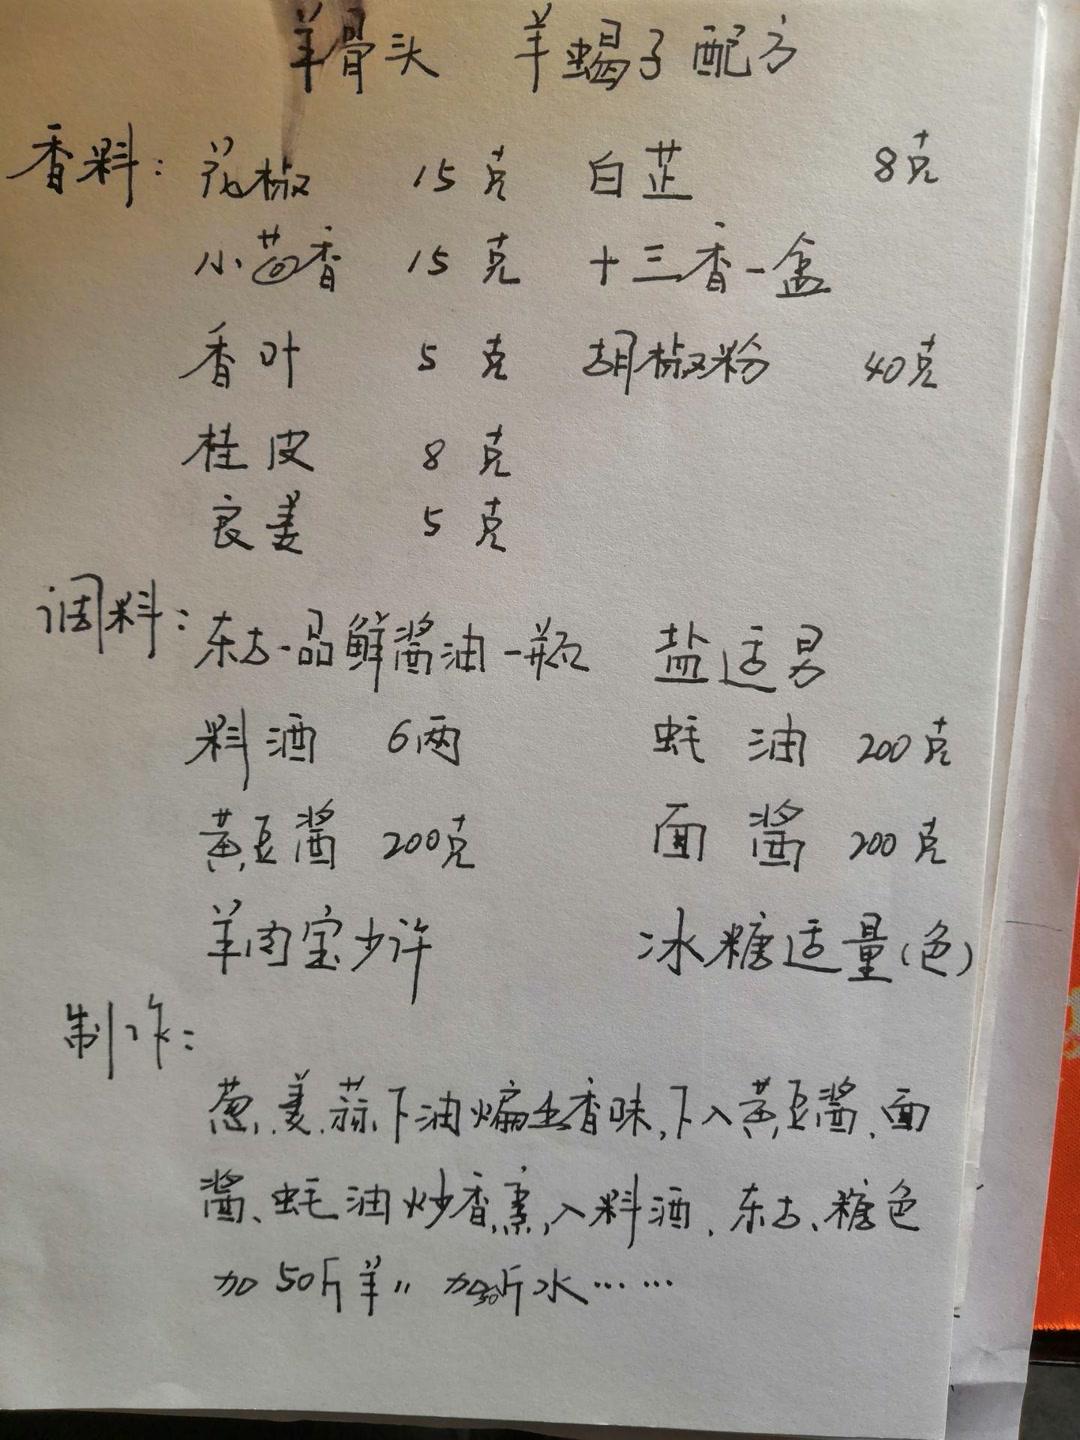 羊骨头 羊蝎子配方
香料: 花椒 15克 白芷 8克
小茴香 15克 十三香一盒
香叶 5克 胡椒粉 40克
桂皮 8克
良姜 5克
调料: 东古一品鲜酱油一瓶 盐适另
料酒 6两 蚝油 200克
黄豆酱 200克 面酱 200克
羊肉宝少许 冰糖适量(色)
制作:
葱、姜、蒜下油煸出香味,下入黄豆酱、面
酱、蚝油炒香, ,入料酒、东古、糖色
加50斤羊〃 加 斤水……